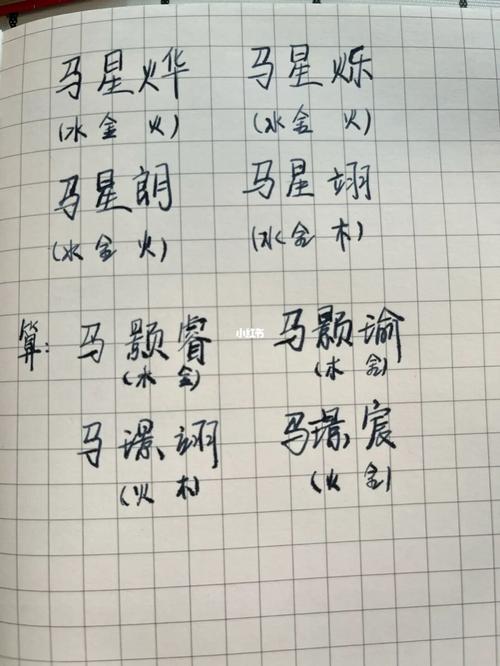 马星烨 马星烁
(水金火) (水金火)
马星朗 马星翊
(水金火) (水金木)
算: 马颢睿 马颢瑜
(水金) (水金)
马璟翊 马璟宸
(火木) (火金)
小红书